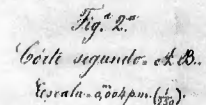 Fig.ª 2.ª
Córte segundo = A. B..
Escala = 0,004 p.m. (1/250)